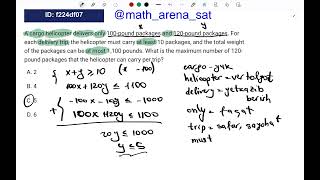 ID: f224df07
@math_arena_sat
x y
A cargo helicopter delivers only 100-pound packages and 120-pound packages. For
each delivery trip, the helicopter must carry at least 10 packages, and the total weight
of the packages can be at most 1,100 pounds. What is the maximum number of 120-
pound packages that the helicopter can carry per trip?
A. 2
B. 4
C. 5
D. 6
x+y≥10 (x -100)
100x+120y≤1100
-100x-100y≤-1000
100x+120y≤1100
20y≤1000
y≤5
cargo - yuk
helicopter = vertolyot
delivery = yetkazib
berish
only = faqat
trip = safar, sayohat
must